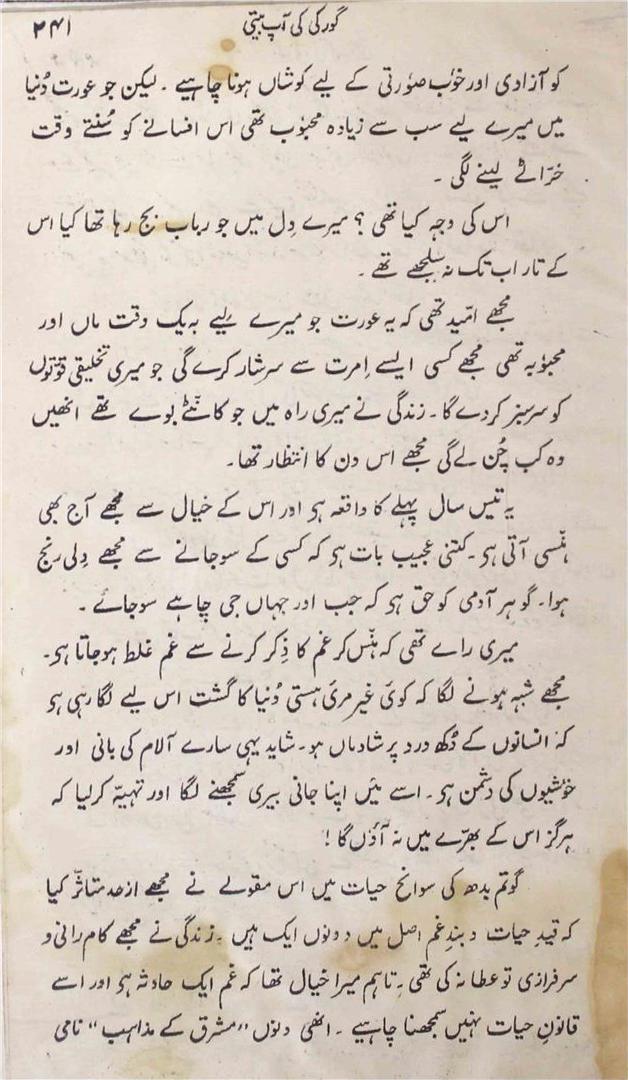 گورکی کی آپ بیتی
۲۴۱
کو آزادی اور خوٗب صوٗرتی کے لیے کوشاں ہونا چاہیے ۔ لیکن جو عورت دُنیا
میں میرے لیے سب سے زیادہ محبوٗب تھی اس افسانے کو سُنتے وقت
خرّاٹے لینے لگی ۔
اس کی وجہ کیا تھی ؟ میرے دِل میں جو رباب بج رہا تھا کیا اس
کے تار اب تک نہ سُلجھے تھے ۔
مجھے امّید تھی کہ یہ عورت جو میرے لیے بہ یک وقت ماں اور
محبوٗبہ تھی مجھے کسی ایسے اِمرت سے سرشار کرے گی جو میری تخلیقی قوّتوں
کو سرسبز کردے گا ۔ زندگی نے میری راہ میں جو کانٹے بوے تھے انھیں
وہ کب چُن لے گی مجھے اس دن کا انتظار تھا۔
یہ تیس سال پہلے کا واقعہ ہو اور اس کے خیال سے مجھے آج بھی
ہنّسی آتی ہو ۔ کتنی عجیب بات ہو کہ کسی کے سوجانے سے مجھے دِلی رنج
ہوا۔ گو ہر آدمی کو حق ہو کہ جب اور جہاں جی چاہے سوجائے ۔
میری راے تھی کہ ہنّس کر غم کا ذِکر کرنے سے غم غلط ہوجاتا ہو۔
مجھے شبہ ہونے لگا کہ کوئ غیر مرئ ہستی دُنیا کا گشت اس لیے لگا رہی ہو
کہ انسانوں کے دُکھ درد پر شادماں ہو ۔ شاید یہی سارے آلام کی بانی اور
خوٗشیوں کی دشمن ہو ۔ اسے مَیں اپنا جانی بیری سمجھنے لگا اور تہیّہ کرلیا کہ
ہرگز اس کے بھرّے میں نہ آؤں گا !
گوتم بدھ کی سوانح حیات میں اس مقولے نے مجھے ازحد متاثّر کیا
کہ قیدِ حیات و بندِ غم اصل میں دونوں ایک ہیں ۔ زندگی نے مجھے کام رانی و
سرفرازی تو عطا نہ کی تھی ۔ تاہم میرا خیال تھا کہ غم ایک حادثہ ہو اور اسے
قانونِ حیات نہیں سمجھنا چاہیے ۔ انھی دنوں ”مشرق کے مذاہب“ نامی